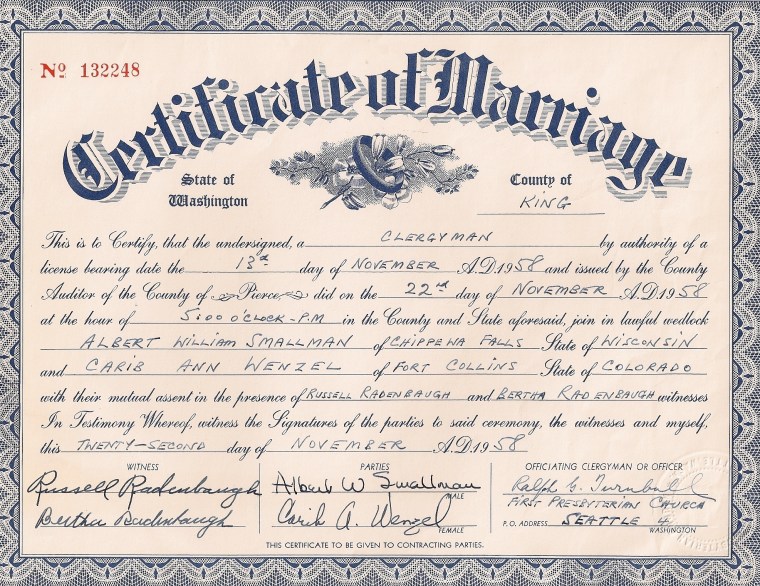 Nº 132248
Certificate of Marriage
State of Washington
County of KING
This is to Certify, that the undersigned, a CLERGYMAN by authority of a
license bearing date the 13th day of NOVEMBER A.D. 1958 and issued by the County
Auditor of the County of Pierce did on the 22nd day of NOVEMBER A.D. 1958
at the hour of 5:00 O'CLOCK-P.M in the County and State aforesaid, join in lawful wedlock
ALBERT WILLIAM SMALLMAN of CHIPPEWA FALLS State of WISCONSIN
and CARIB ANN WENZEL of FORT COLLINS State of COLORADO
with their mutual assent in the presence of RUSSELL RADENBAUGH and BERTHA RADENBAUGH witnesses
In Testimony Whereof, witness the Signatures of the parties to said ceremony, the witnesses and myself,
this TWENTY-SECOND day of NOVEMBER A.D. 1958
WITNESS
Russell Radenbaugh
Bertha Radenbaugh
PARTIES
Albert W Smallman
MALE
Carib A. Wenzel
FEMALE
OFFICIATING CLERGYMAN OR OFFICER
Ralph G. Turnbull
FIRST PRESBYTERIAN CHURCH
P. O. ADDRESS SEATTLE 4
WASHINGTON
THIS CERTIFICATE TO BE GIVEN TO CONTRACTING PARTIES.